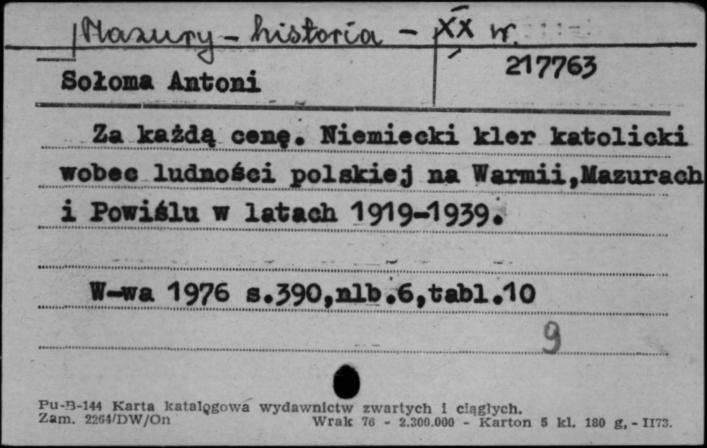 Mazury - historia - XX w.
217763
Sołoma Antoni
Za każdą cenę. Niemiecki kler katolicki
wobec ludności polskiej na Warmii,Mazurach
i Powiślu w latach 1919-1939.
W-wa 1976 s.390,nlb.6,tabl.10
9
Pu-B-144 Karta katalogowa wydawnictw zwartych i ciągłych.
Zam. 2264/DW/On Wrak 76 - 2.300.000 - Karton 5 kl. 180 g, - II73.